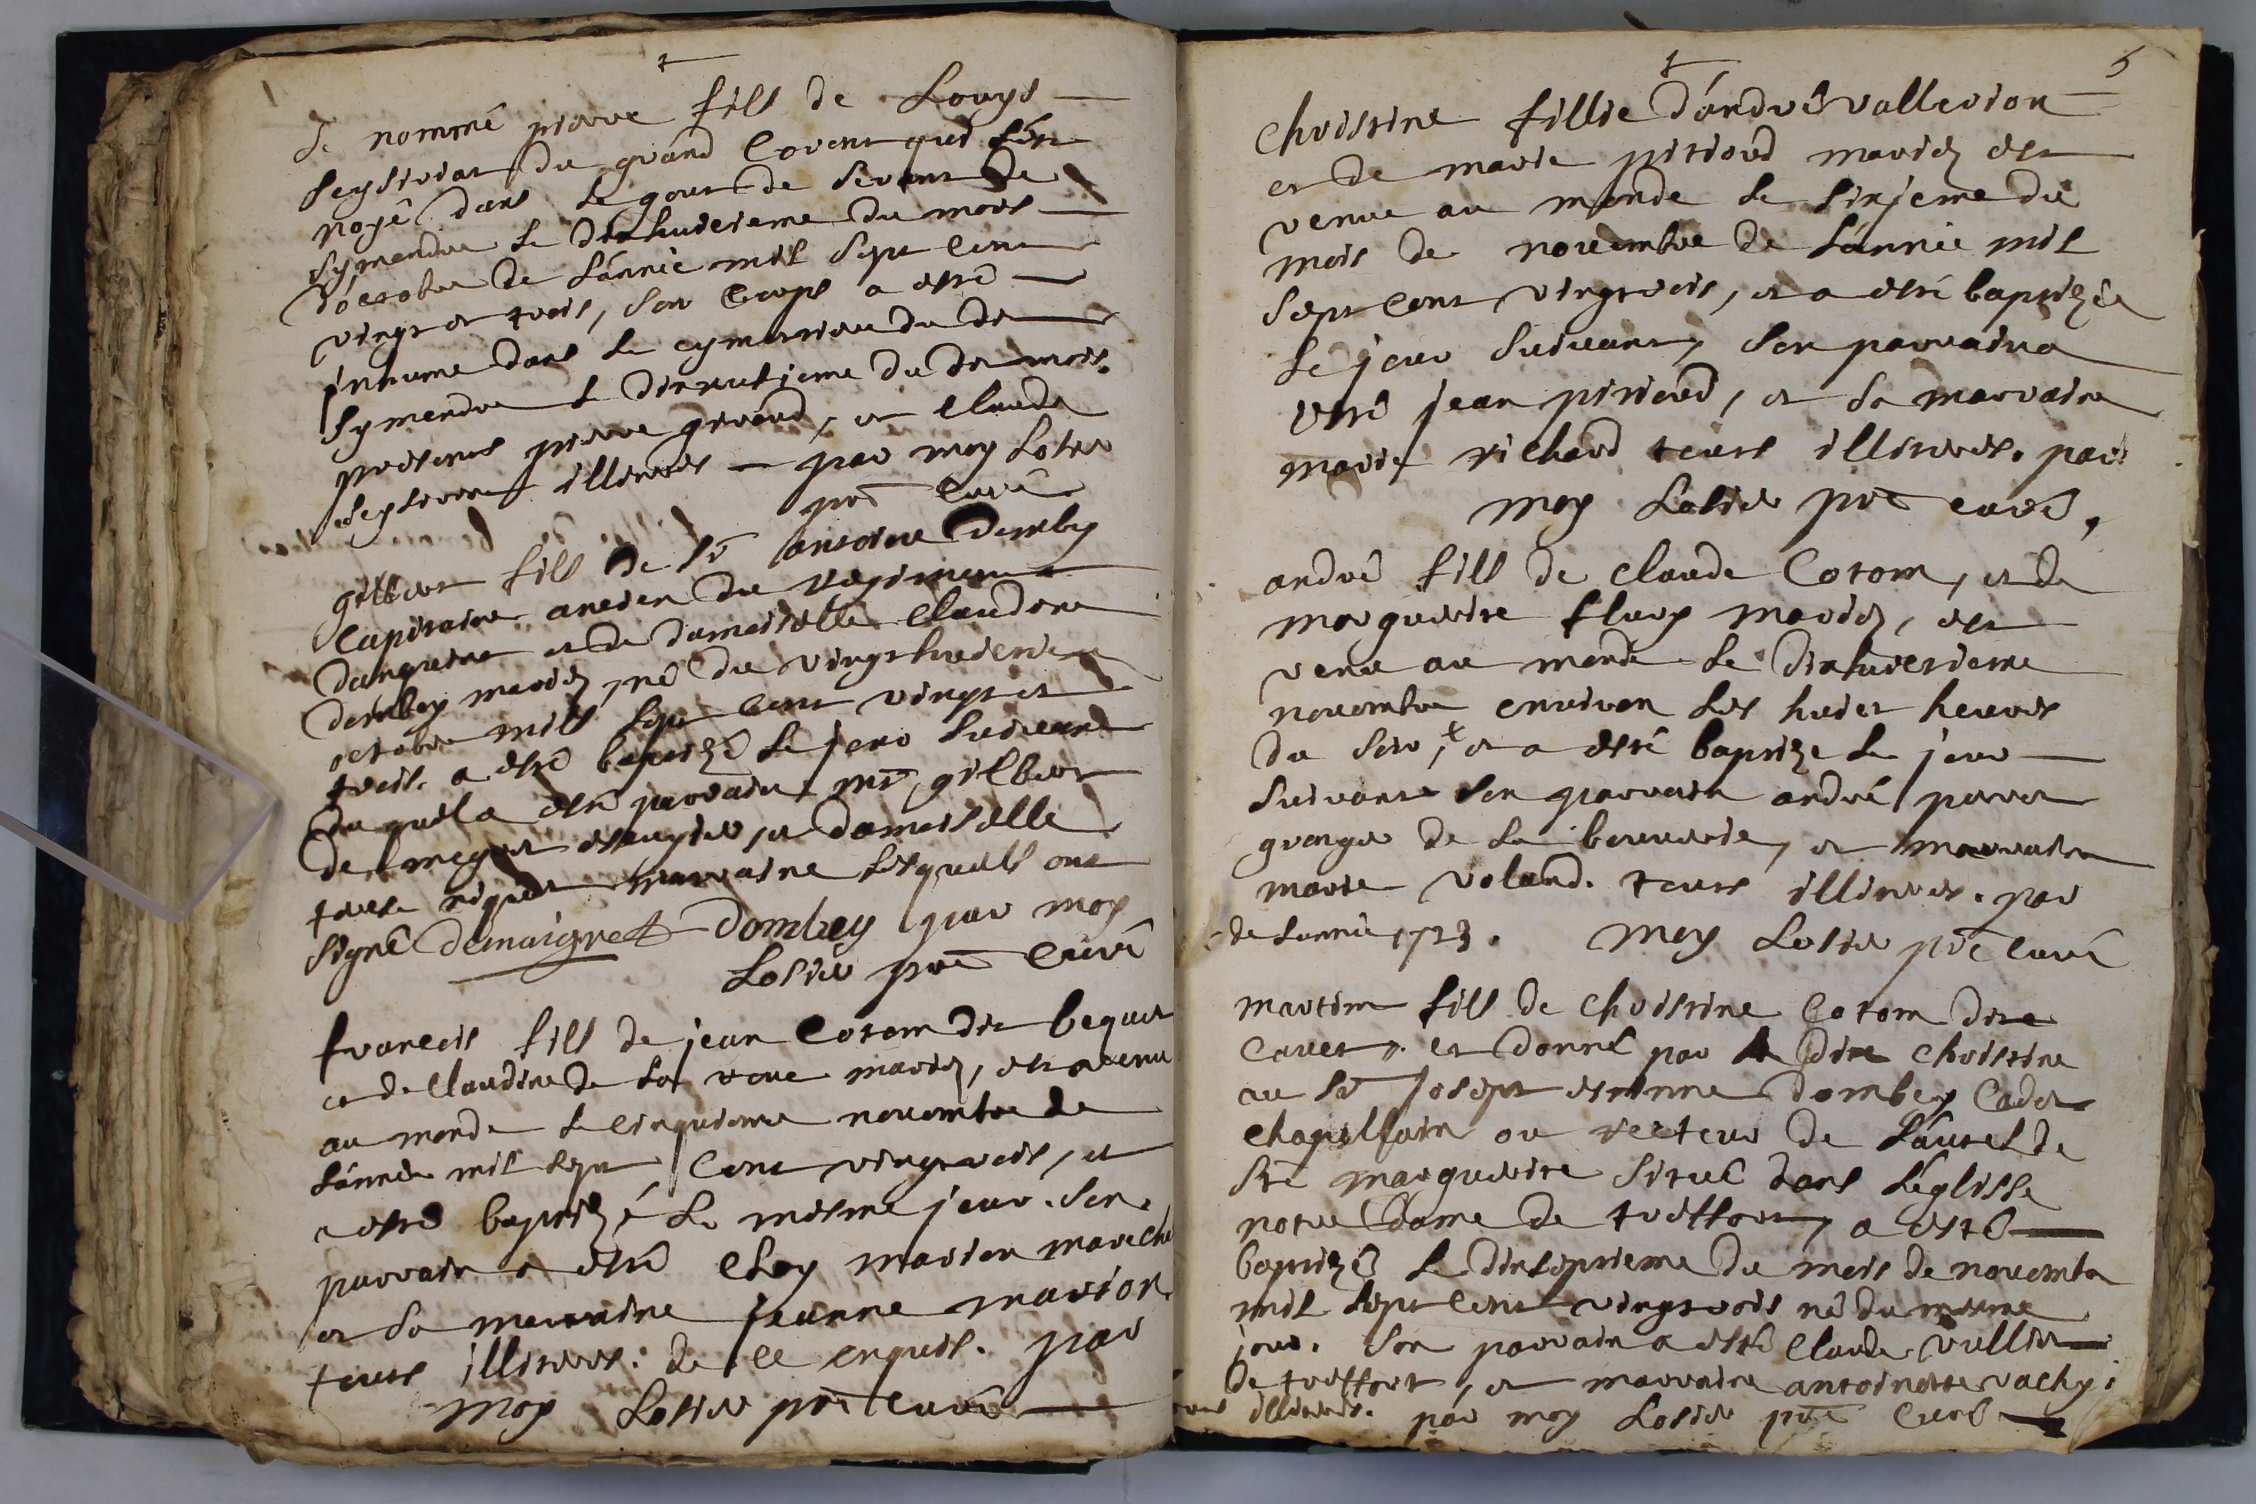 le nommé pierre fils de Louys
seysiriat du grand Corent qui s'est
noyé dans le gour de devant de
symandre le dixhuictieme du mois
d'octobre de l'année mil sept cent
vingt et trois, son Corps a esté
inhumé dans le cymetiere du dt
symandre le dixneufieme du dt mois.
presents pierre giroud, et Claude
illiterés par moy Lostie
pre Curé
gilbert fils de sr antoine Dombey
Capitaine ancien du regiment
et de damoiselle Claudine
dombey mariez, né du vingthuictieme
octobre mill sept Cent vingt et
trois. a esté baptizé le jour suivant
duquel a esté parrain mre gilbert
de escuyer, et damoiselle
marraine lesquels ont
signé demaigret Dombey par moy
Lostie pre Curé
francois fils de jean Cotom dit bequet
et de Claudine de la roue mariez, est venu
au monde le cinquieme novembre de
l'année mil sept Cent vingtrois, et
a esté baptizé le mesme jour. son
parrain a esté Cloy marion
et sa marraine jeanne marion
tous illiterés. de ce enquis. par
moy Lostie pre Curé
5
christine fillie d'andre vallerion
et de marie pitioud mariez est
venue au monde le sixieme du
mois de novembre de l'année mil
sept Cent vingtrois, et a esté baptizée
le jour suivant, son parrain a
esté jean pitioud, et sa marraine
marie richard tous illiterés. par
moy Lostie pre curé,
andré fils de claude Cotom, et de
marguerite flury mariez, est
venu au monde le dixhuictieme
novembre environ les huict heures
du soir, + et a esté baptize le jour
suivant son parrain andré
granger de la bouverie, et marraine
marie voland. tous illiterés. par
+ de l'année 1723. moy Lostie pre curé
martin fils de christine Cotom dite
Cavet et donné par la dite christine
au sr joseph estienne dombey Cadet
chapellain ou recteur de l'autel de
ste marguerite situé dans l'eglisse
notre dame de treffort, a esté
baptizé le dixseptieme du mois de novembre
mil sept Cent vingtrois né du mesme
jour. son parrain a esté Claude vullier
de treffort, et marraine antoinette vachy.
tous illiterés. par moy Lostie pre Curé